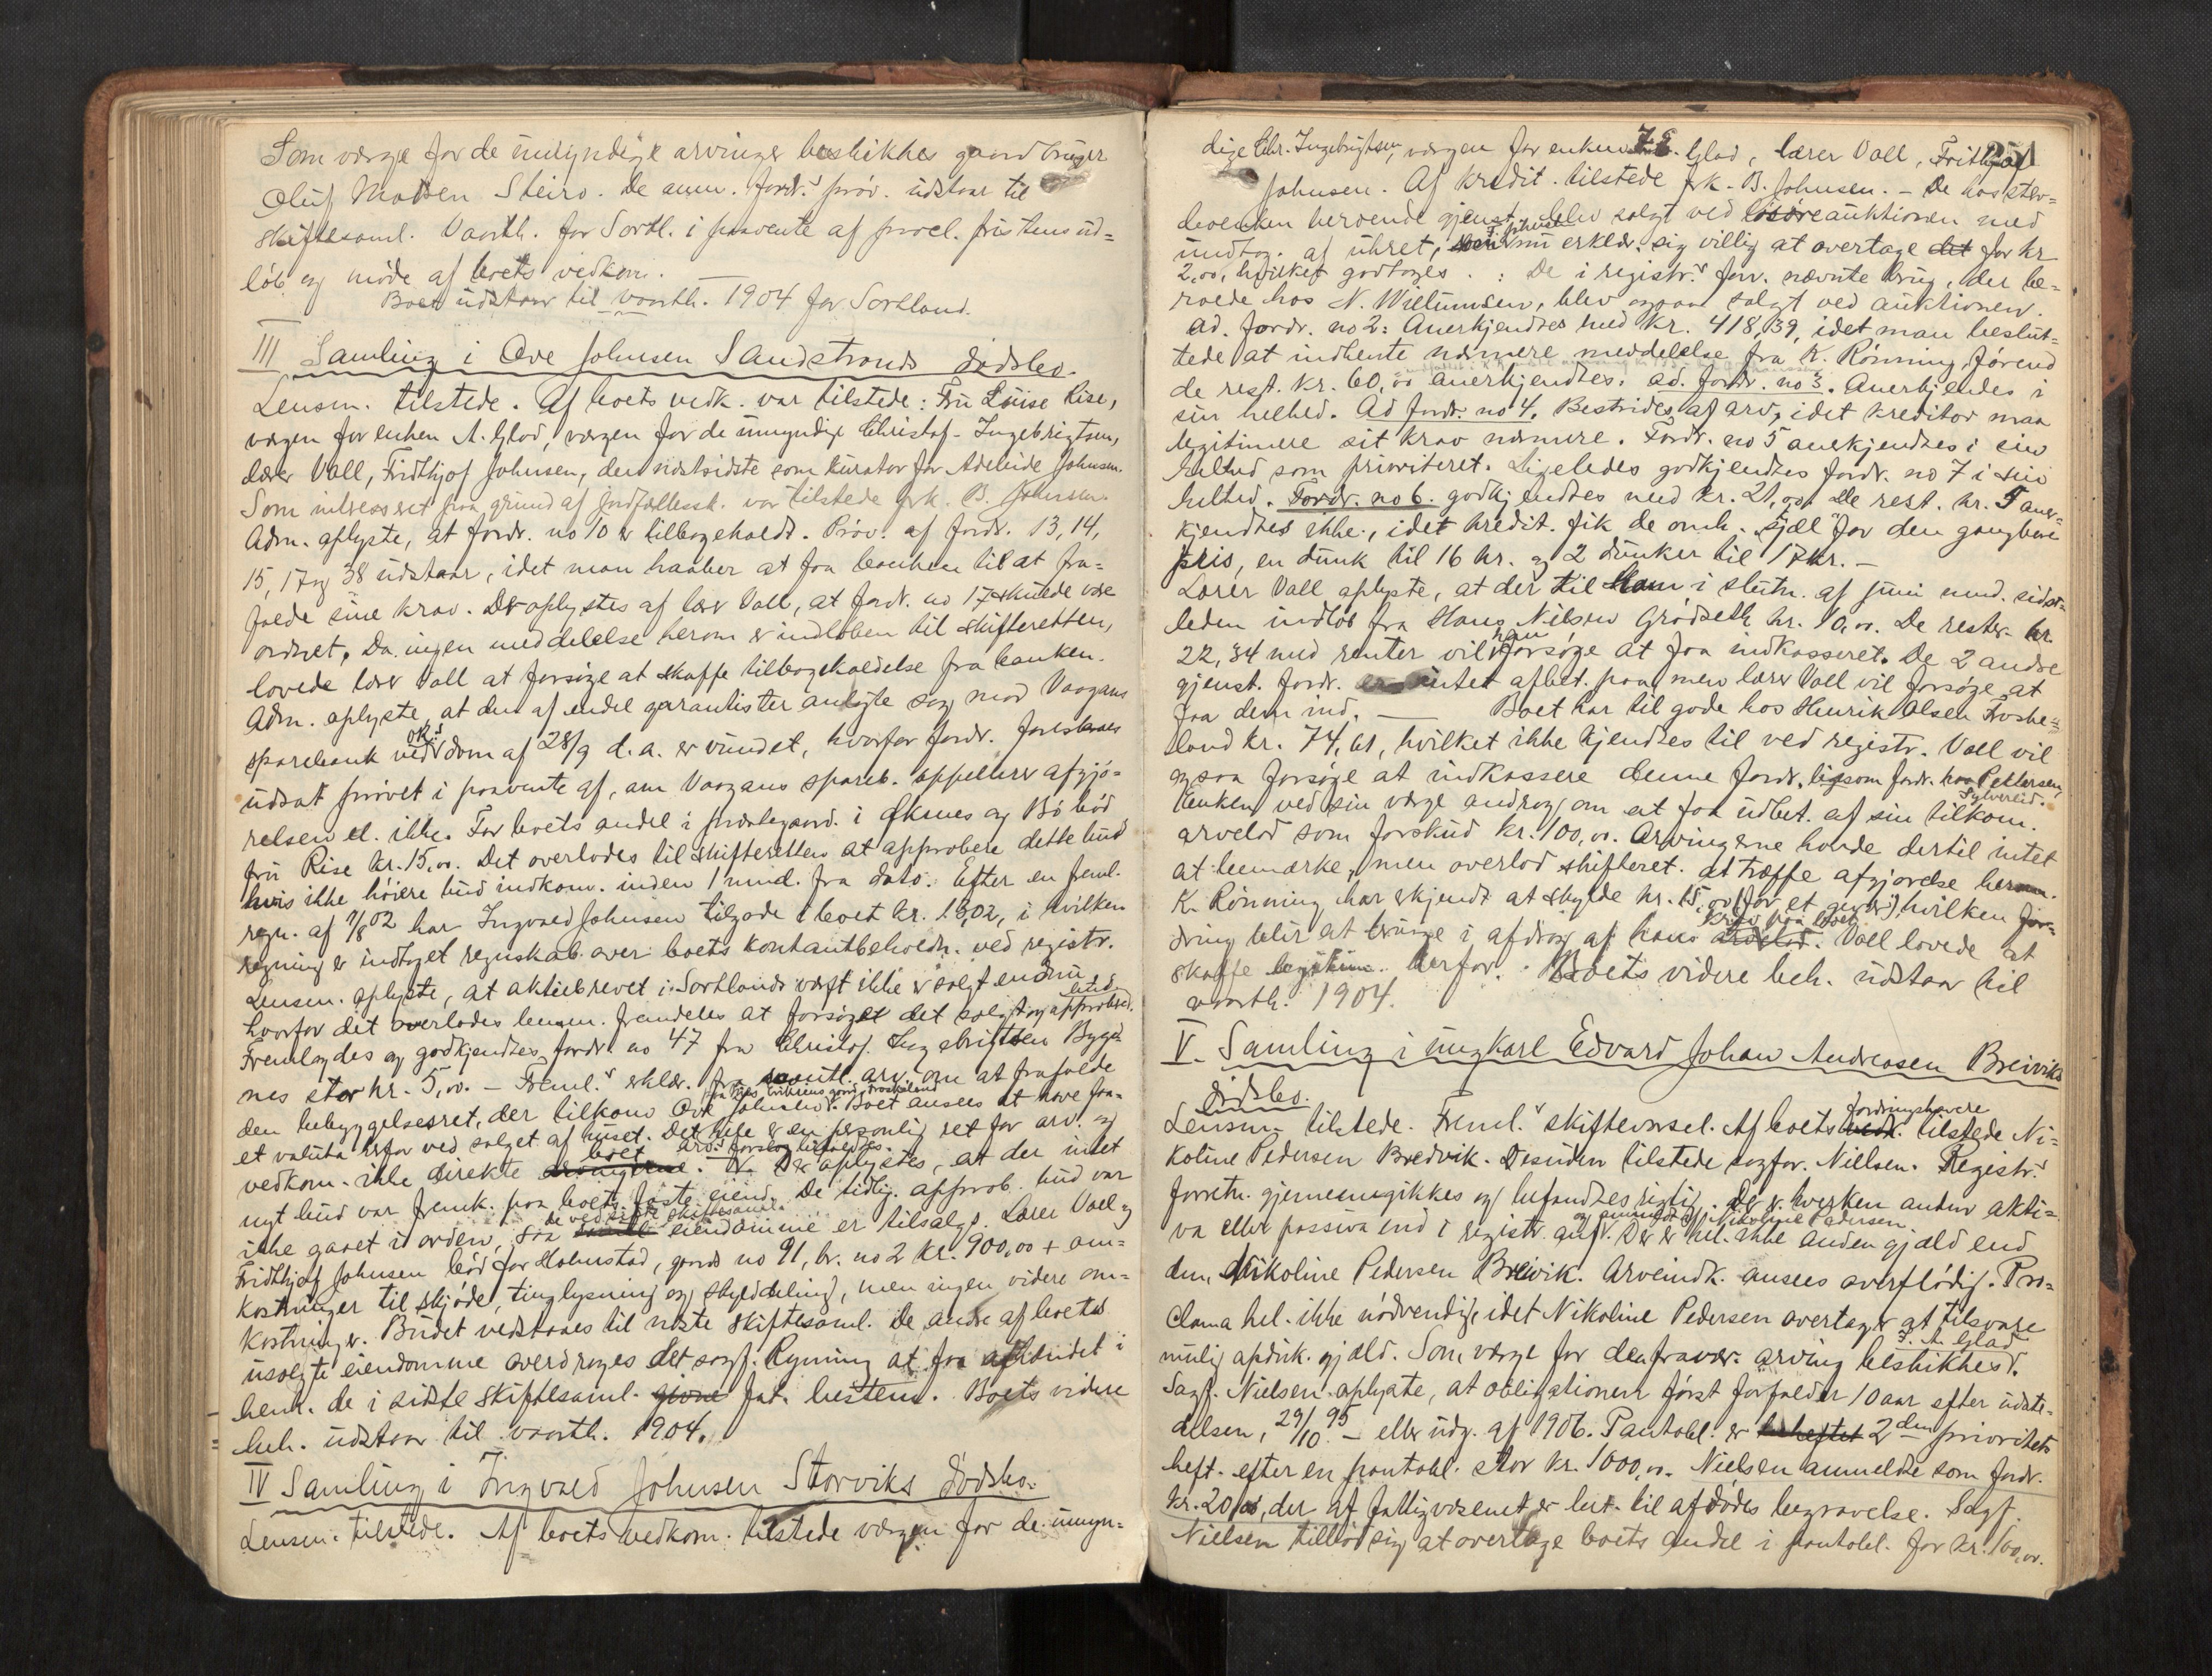 Som værge for de umyndige arvinger beskikkes gaardbruger
Oluf Madsen Steiro. De anm. fordr.s prøv. udstaar til
skiftesaml. vaarth. for Sortl. i paavente af procl. fristens ud-
løb og møde af boets vedkom.
Boet udstaar til vaarth. 1904 for Sortland.
III Samling i Ove Johnsen Sandstrands dødsbo.
Lensm. tilstede. Af boets vedk. var tilstede: Fru Louise Rise,
værgen for enken A. Glad, værgen for de umyndige Christof. Ingebrigtsen,
lærer Voll, Fridthjof Johnsen, den næstsidste som kurator for Adeleide Johnsen.
Som interesseret paa grund af jordfællessk. var tilstede frk. B. Johnsen.
Adm. oplyste, at fordr. no 10 er tilbageholdt. Prøv. af fordr. 13, 14,
15, 17 og 38 udstaar, idet man haaber at faa banken til at fra-
falde sine krav. Det oplystes af lærer Voll, at fordr. no 17 skulde være
ordnet. Da ingen meddelelse herom er indløben til skifteretten,
lovede lærer Voll at forsøge at skaffe tilbageholdelse fra banken.
Adm. oplyste, at den af endel garantister anlagte sag mod Vaagans
sparebank ved dom af 28/9 d. a. er vundet, hvorfor fordr. foreslaaes
udsat prøvet i paavente af, om Vaagans spareb. appellerer afgjø-
relsen el. ikke. For boets andel i prestegaard. i Øksnes og Bø bød
fru Rise kr. 15,00. Det overlodes til skifteretten at approbere dette bud
hvis ikke høiere bud indkom. inden 1 mnd. fra dato. Efter en freml.
regn. af 7/8 02 har Ingvald Johnsen tilgode i boet kr. 13,02, i hvilken
regning er indtaget regnskab over boets kontantbeholdn. ved registr.
Lensm. oplyste, at aktiebrevet i Sortlands værft ikke er solgt endnu
hvorfor det overlodes lensm. fremdeles at forsøge det solgt og approberet.
Fremlagdes og godkjendtes fordr. no 47 fra Christof. Ingebrigtsen Bygd-
nes stor kr. 5,00. – Freml.s erklær. fra samtl. arv. om at frafalde
den bebyggelsesret, der tilkom Ove Johnsen. Boet ansees at have faa-
et valuta herfor ved salget af huset. Det hele er en personlig ret for arv. og
vedkom. ikke direkte boet. Arv.s forslag bifaldtes. Det oplystes, at der intet
nyt bud var fremk. paa boets faste eiend. De tidlig. approb. bud var
ikke gaaet i orden, saa de ved sidste skiftesaml. eiendomme er tilsalgs. Lærer Voll og
Fridthjof Johnsen bød for Holmstad, gaards no 91, br. no 2 kr. 900,00 + om-
kostninger til skjøde, tinglysning og skylddeling, men ingen videre om-
kostninger. Budet vedstaaes til næste skiftesaml. De andre af boets
usolgte eiendomme overdrages det sagf. Rynning at faa afhændet i
henh. de i sidste skiftesaml. givne fat. bestem. Boets videre
beh. udstaar til vaarth. 1904.
IV Samling i Ingvald Johnsen Storviks dødsbo.
Lensm. tilstede. Af boets vedkom. tilstede værgen for de umyn-
dige Chr. Ingebrigtsen, værgen for enken A. Glad, lærer Voll, Frithjof
Johnsen. Af kredit. tilstede frk. B. Johnsen. – De hos ster-
boenken beroende gjenst. blev solgt ved løsøreauktionen med
undtag. af uhret, nu erklær. sig villig at overtage det for kr
2,00, hvilket godtoges. : De i registr.s forr. nævnte brug, der be-
roede hos N. Willumsen, blev ogsaa solgt ved auktionen.
ad. fordr. no 2: Anerkjendtes med kr. 418,39, idet man beslut-
tede at indhente nærmere meddelelse fra K. Rønning, førend
de rest. kr. 60,00 anerkjendtes. ad. fordr. no 3. Anerkjendes i
sin helhed. Ad fordr. no 4. Bestrides af arv., idet kreditor maa
legitimere sit krav nærmere. Fordr. no 5 anerkjendtes i sin
helhed som prioriteret. Ligeledes godkjendtes fordr. no 7 i sin
helhed. Fordr. no 6. godkjendtes med kr. 21,00. De rest. kr. 5 aner-
kjendtes ikke, idet kredit. fik de omh. fjæl for den gangbare
pris, en dunk til 16 kr. og 2 dunker til 17 kr. –
Lærer Voll oplyste, at der til ham i slutn. af juni mnd. sidst-
leden indløb fra Hans Nilsen Grødseth kr. 10,00. De rester. kr.
22,34 med renter vil han forsøge at faa indkasseret. De 2 andre
gjenst. fordr. er intet afbet. paa, men lærer Voll vil forsøge at
faa dem ind. – Boet har til gode hos Henrik Olsen Froske-
land kr. 74,61, hvilket ikke kjendtes til ved registr. Voll vil
ogsaa forsøge at indkassere denne fordr. ligesom fordr. hos Pettersen, Sylvereid.
Enken ved sin værge androg om at faa udbet. af sin tilkom.
arvelod som forskud kr. 100,00. Arvingerne havde dertil intet
at bemærke, men overlod skifteret. at træffe afgjørelse herom.
K. Rønning har erkjendt at skylde kr. 15,00 (for et gevær), hvilken for-
dring blir at bringe i afdrag af hans krav paa boet. Voll lovede at
skaffe legitim. herfor. Boets videre beh. udstaar til
vaarth. 1904.
V. Samling i ungkarl Edvard Johan Andreasen Breiviks
dødsbo.
Lensm. tilstede. Freml.s skiftevarsel. Af boets fordringshavere tilstede Ni-
koline Pedersen Bredvik. Desuden tilstede sagfør. Nielsen. Registr.s
forretn. gjennemgikkes og befandtes rigtig. Der er hverken anden akti-
va eller passiva end i registr. anf. Der er hel. ikke anden gjæld end
den, Nikoline Pedersen Breivik. Arveindk. ansees overflødig. Pro-
clama hel. ikke nødvendig, idet Nikoline Pedersen overtager at tilsvare
mulig opduk. gjæld. Som værge for den fravær. arving beskikkes J. A. Glad.
Sagf. Nielsen oplyste, at obligationen først forfalder 10 aar efter udste-
delsen, 29/10 95 – eller udg. af 1906. Pantobl. er 2den prioritets
heft. efter en pantobl. stor kr. 1000,00. Nielsen anmeldte som fordr.
kr. 20,00, der af fattigvæsenet er bet. til afdødes begravelse. Sagf.
Nielsen tilbød sig at overtage boets andel i pantobl. for kr. 100,00.